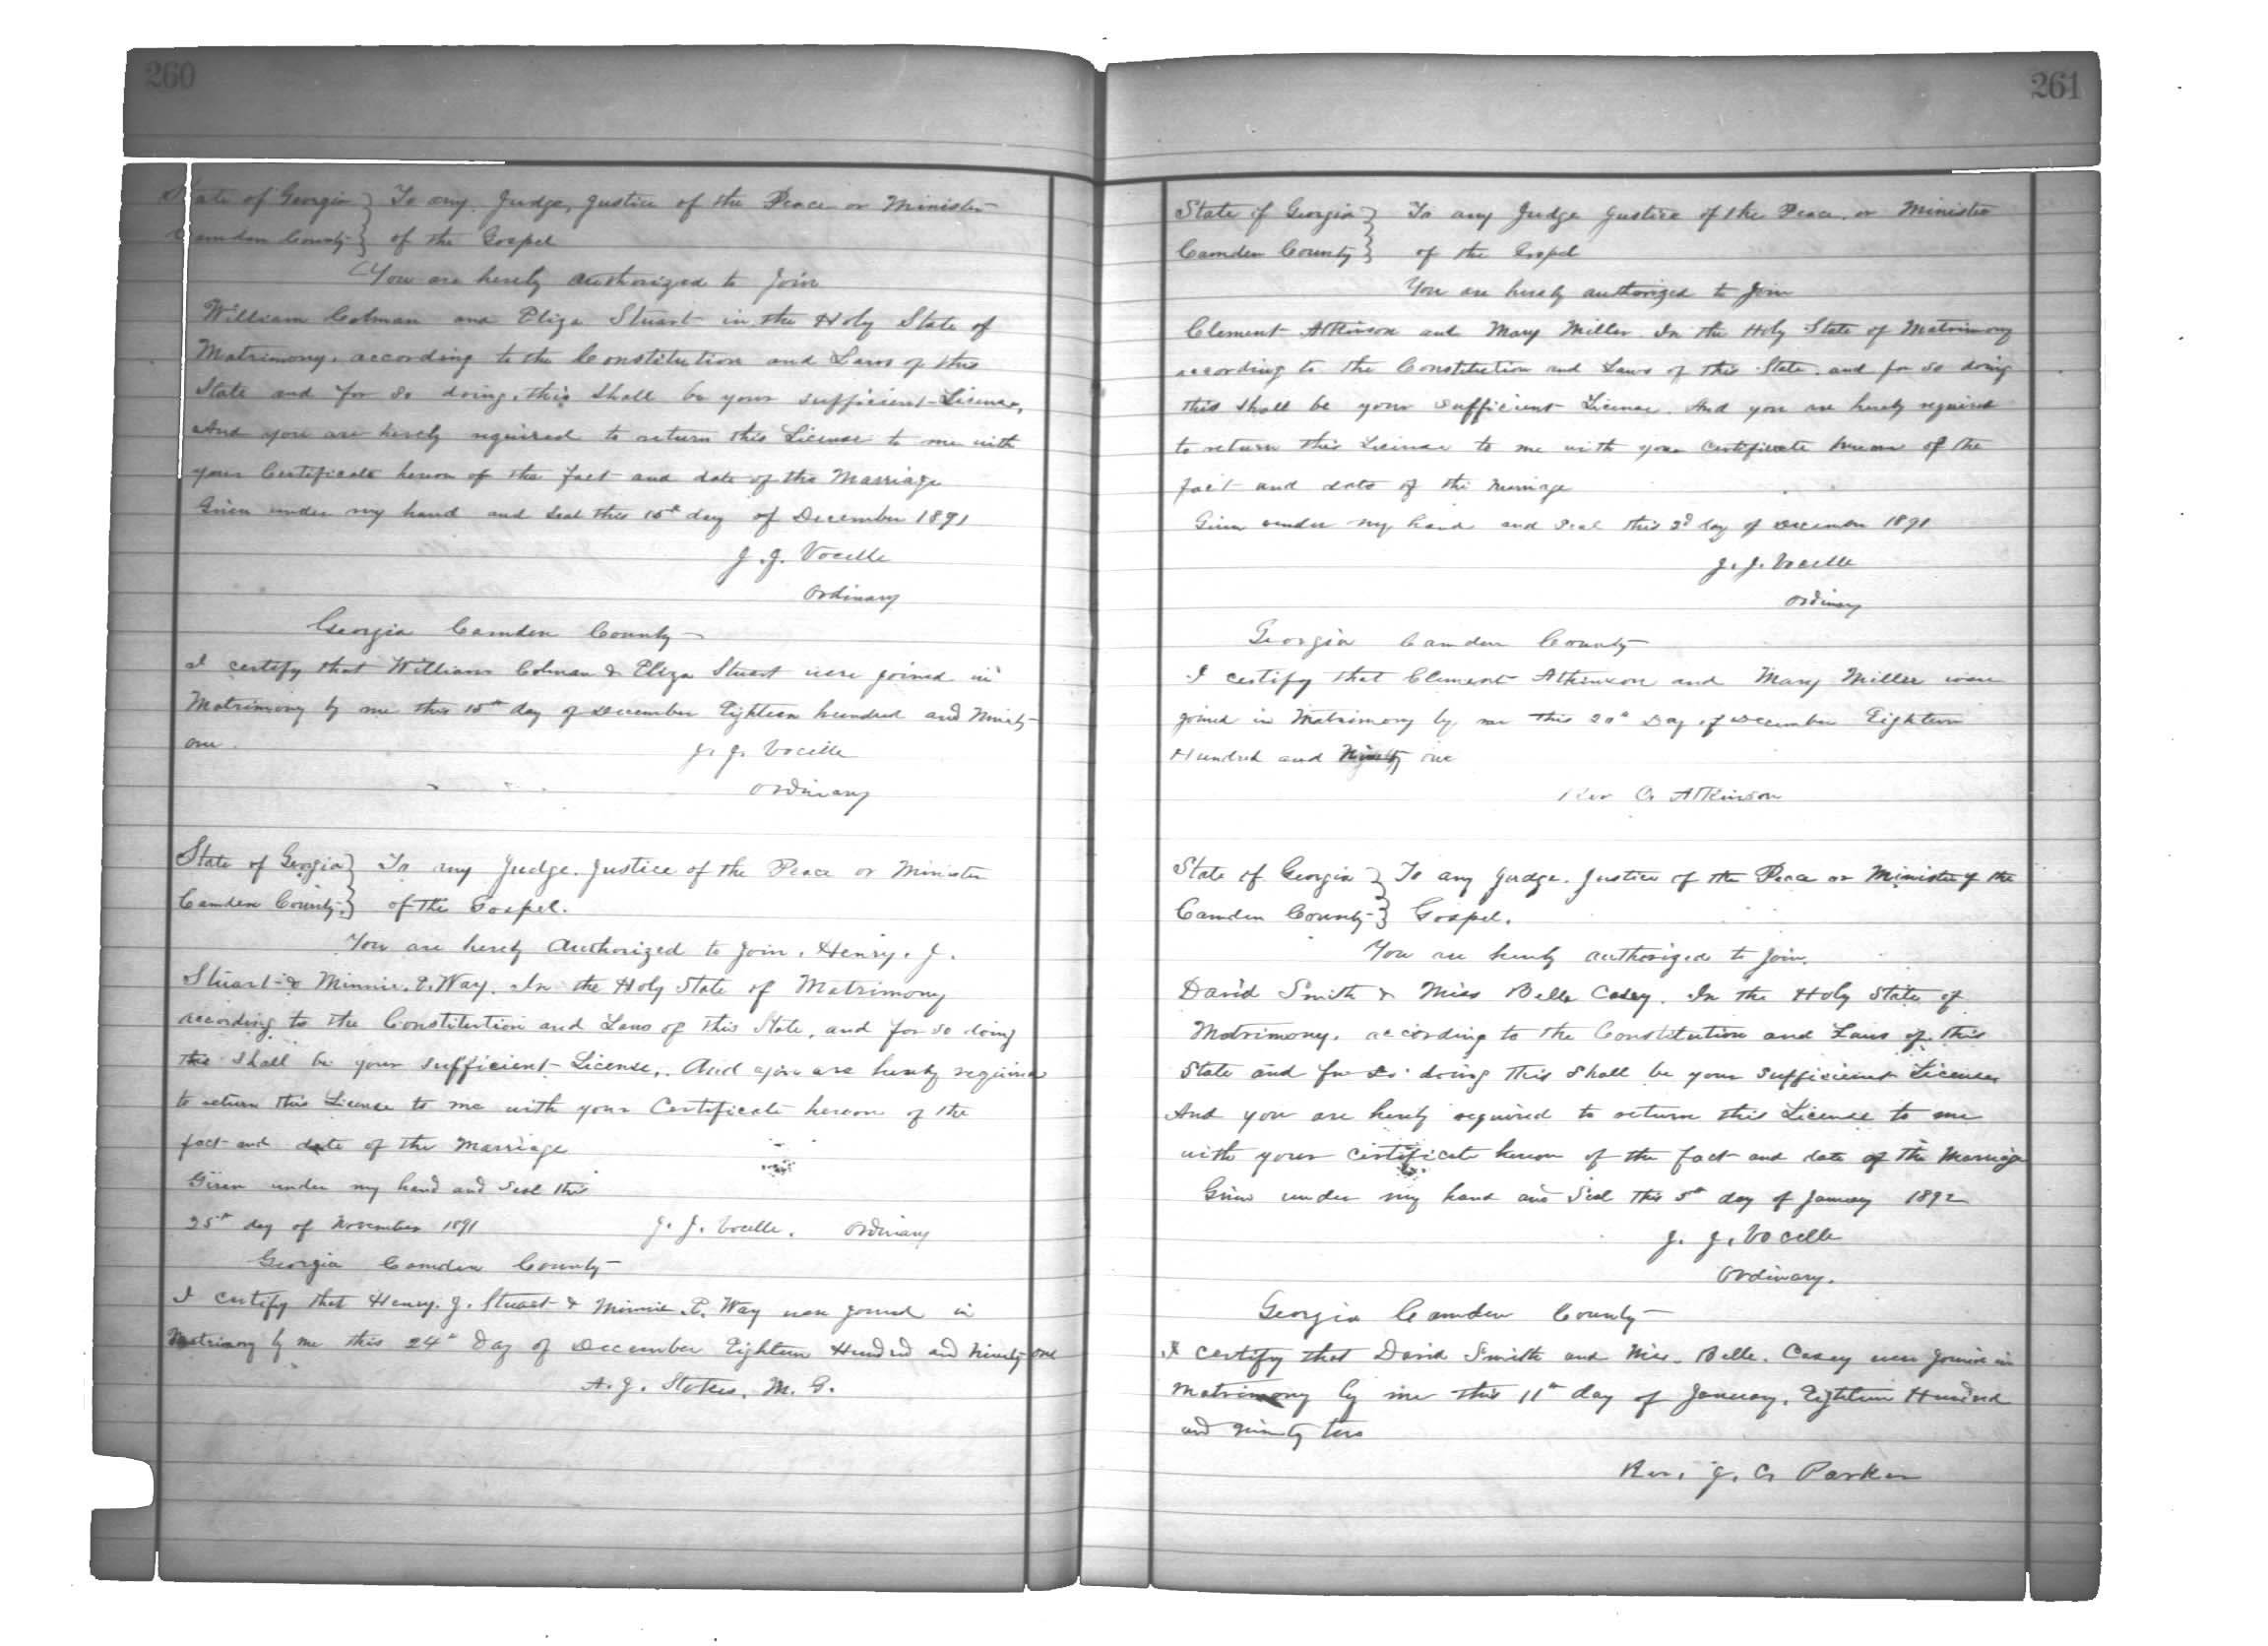 260
State of Georgia } To any Judge, Justice of the Peace or Minister
Camden County } of the Gospel
You are hereby authorized to Join
William Colman and Eliza Stuart in the Holy State of
Matrimony, according to the Constitution and Laws of this
State and for so doing, this shall be your sufficient License,
And you are hereby required to return this License to me with
your Certificate hereon of the fact and date of the Marriage
Given under my hand and seal this 15th day of December 1891
J. J. Vocelle
Ordinary
Georgia Camden County
I certify that William Colman & Eliza Stuart were joined in
Matrimony by me this 15th day of December Eighteen hundred and Ninety
one.
J. J. Vocelle
Ordinary
State of Georgia } To any Judge. Justice of the Peace or Minister
Camden County. } of the Gospel.
You are hereby Authorized to Join. Henry. J.
Stuart & Minnie. P. Way. In the Holy State of Matrimony
according to the Constitution and Laws of this State, and for so doing
this shall be your sufficient License,. And you are hereby required
to return this License to me with your Certificate hereon of the
fact and date of the Marriage
Given under my hand and Seal this
25th day of November 1891 J. J. Vocelle. Ordinary
Georgia Camden County
I certify that Henry. J. Stuart & Minnie P. Way were joined in
Matrimony by me this 24th Day of December Eighteen Hundred and Ninety one
A. J. Stokes, M. G.
261
State of Georgia } To any Judge Justice of the Peace. or Minister
Camden County } of the Gospel
You are hereby authorized to Join
Clement Atkinson and Mary Miller. In the Holy State of Matrimony
according to the Constitution and Laws of this State. and for so doing
this shall be your sufficient License. And you are hereby required
to return this License to me with your Certificate hereon of the
fact and date of the Marriage
Given under my hand and Seal this 3d day of December 1891
J. J. Vocelle
Ordinary
Georgia Camden County
I certify that Clement Atkinson and Mary Miller were
joined in Matrimony by me this 20th Day of December Eighteen
Hundred and Ninety one
Rev C. Atkinson
State of Georgia } To any Judge. Justice of the Peace or Minister of the
Camden County } Gospel.
You are hereby authorized to Join.
David Smith & Miss Belle Casey. In the Holy State of
Matrimony. according to the Constitution and Laws of this
State and for so doing this shall be your sufficient License
And you are hereby required to return this License to me
with your certificate hereon of the fact and date of the Marriage
Given under my hand and Seal this 5th day of January 1892
J. J. Vocelle
Ordinary.
Georgia Camden County
I certify that David Smith and Miss Belle. Casey were Joined in
Matrimony by me this 11th day of January, Eighteen Hundred
and ninety two
Rev. J. C. Parker